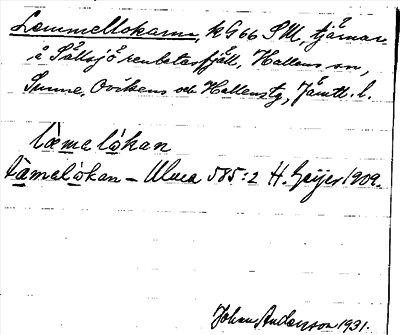 Lemmellokarna, k 966 SU, tjärnar
å Sällsjö renbetesfjäll, Hallens sn,
Sunne, Ovikens och Hallens tg, Jämtl. l.
làmalókan
làmalòkan – Ulma 585:2 H. Geijer 1909.
Johan Anderson 1931.